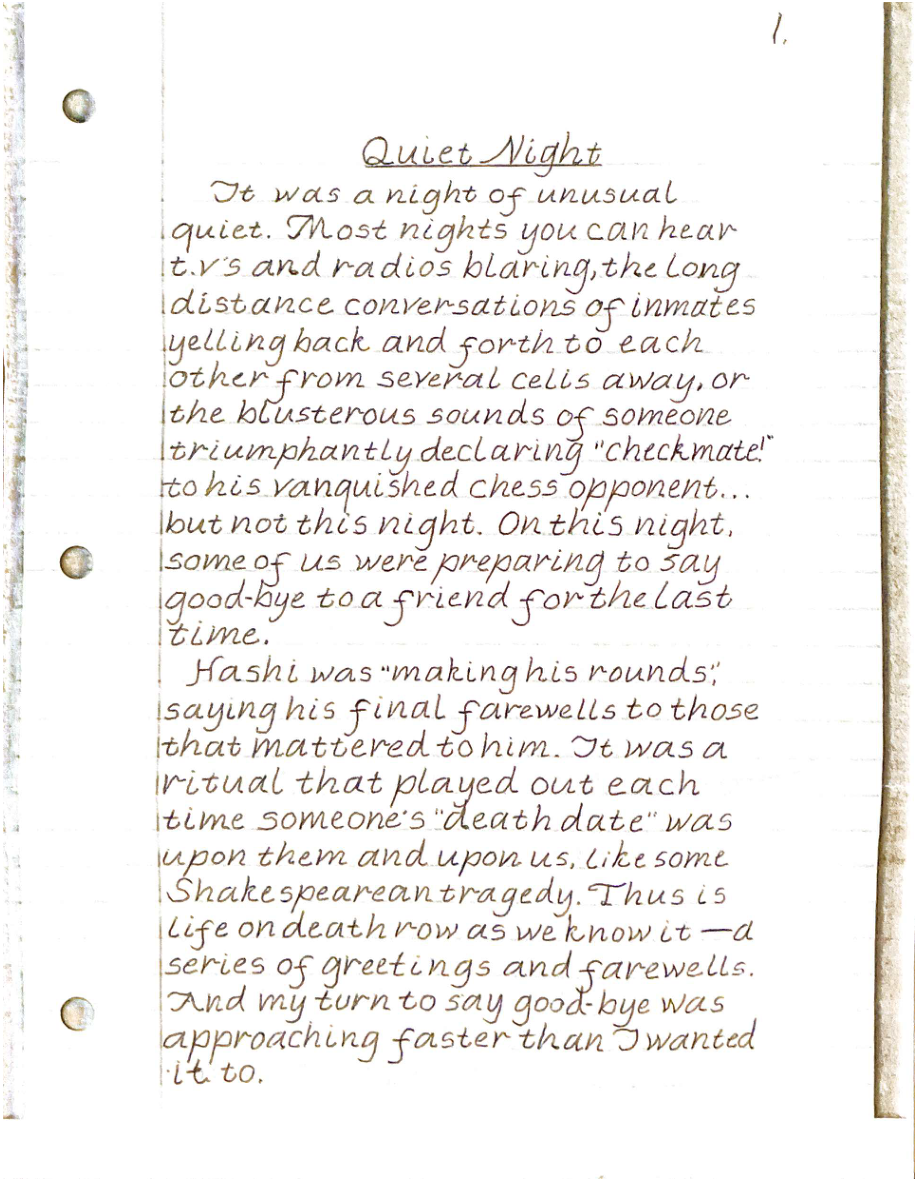 1.
Quiet Night
It was a night of unusual
quiet. Most nights you can hear
t.v's and radios blaring, the long
distance conversations of inmates
yelling back and forth to each
other from several cells away, or
the blusterous sounds of someone
triumphantly declaring "checkmate!"
to his vanquished chess opponent...
but not this night. On this night,
some of us were preparing to say
good-bye to a friend for the last
time.
Hashi was "making his rounds",
saying his final farewells to those
that mattered to him. It was a
ritual that played out each
time someone's "death date" was
upon them and upon us, like some
Shakespearean tragedy. Thus is
life on death row as we know it —a
series of greetings and farewells.
And my turn to say good-bye was
approaching faster than I wanted
it to.